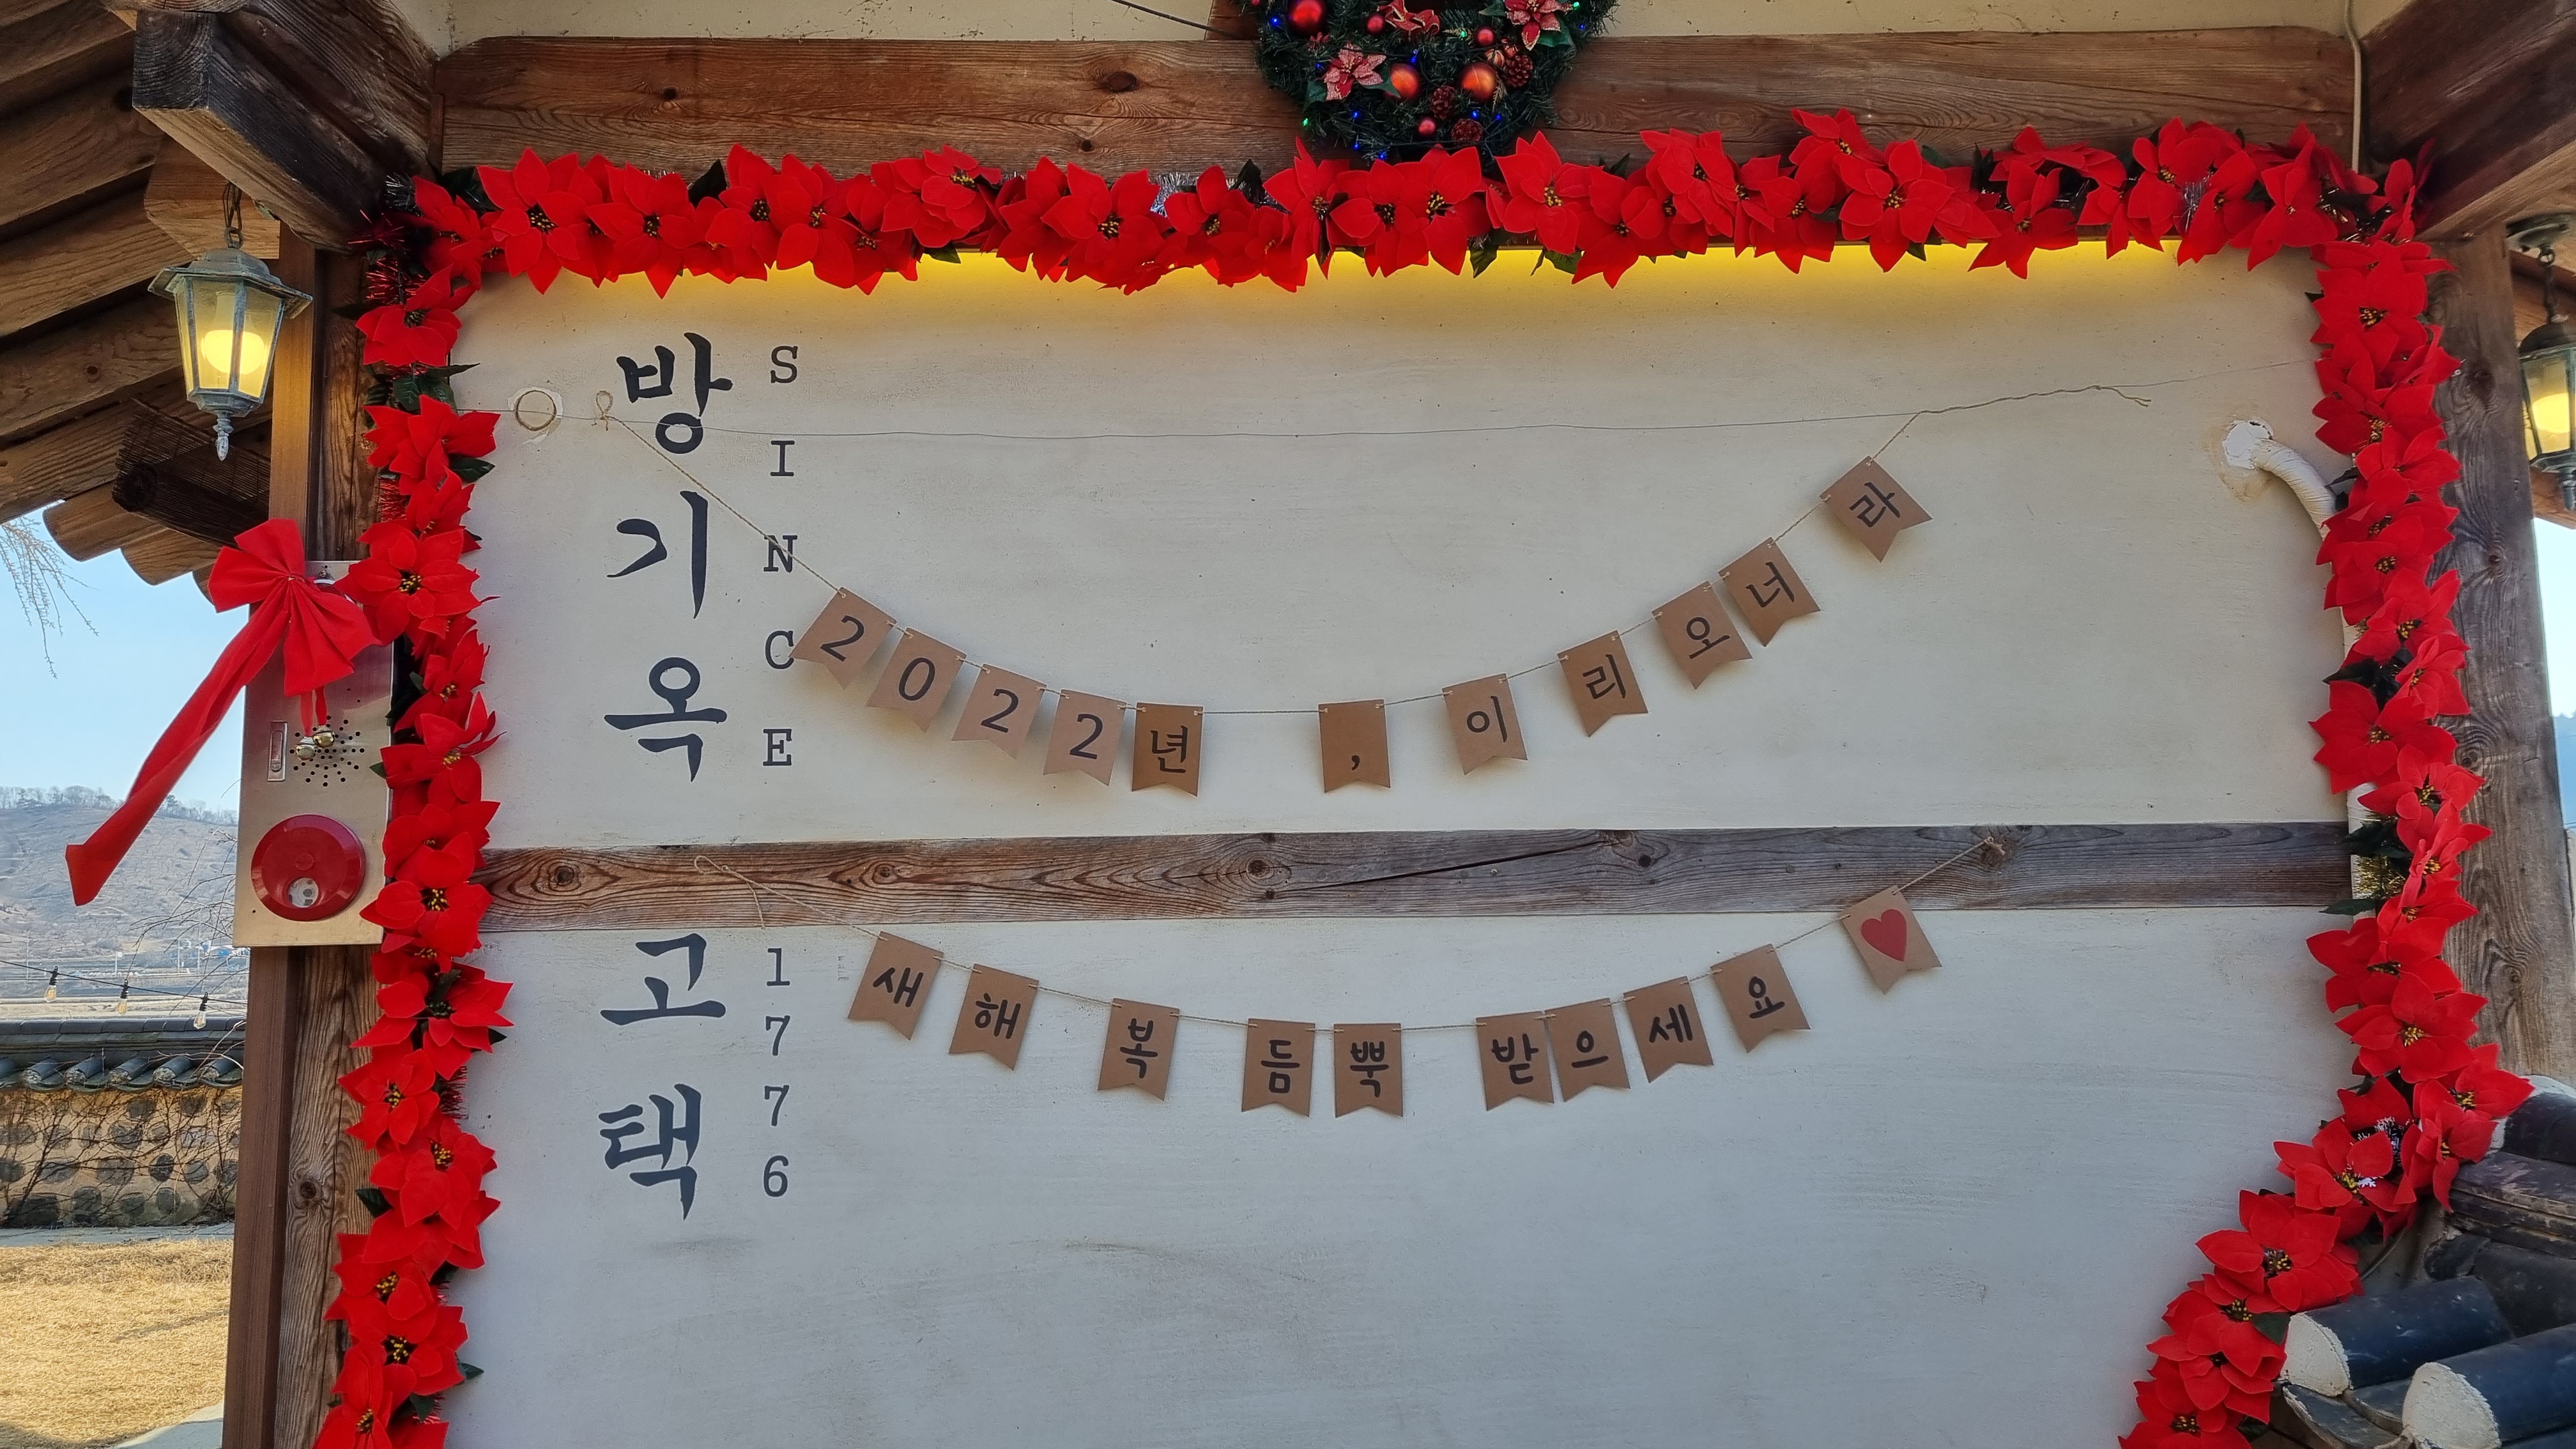 방기옥
고택
SINCE
1776
2022년, 이리오너라
새해 복 듬뿍 받으세요♥